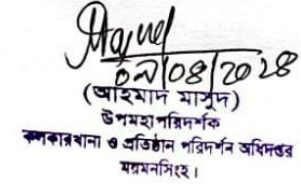 ০৯/০৪/২০২৪
(আহমাদ মাসুদ)
উপমহাপরিদর্শক
কলকারখানা ও প্রতিষ্ঠান পরিদর্শন অধিদপ্তর
ময়মনসিংহ।